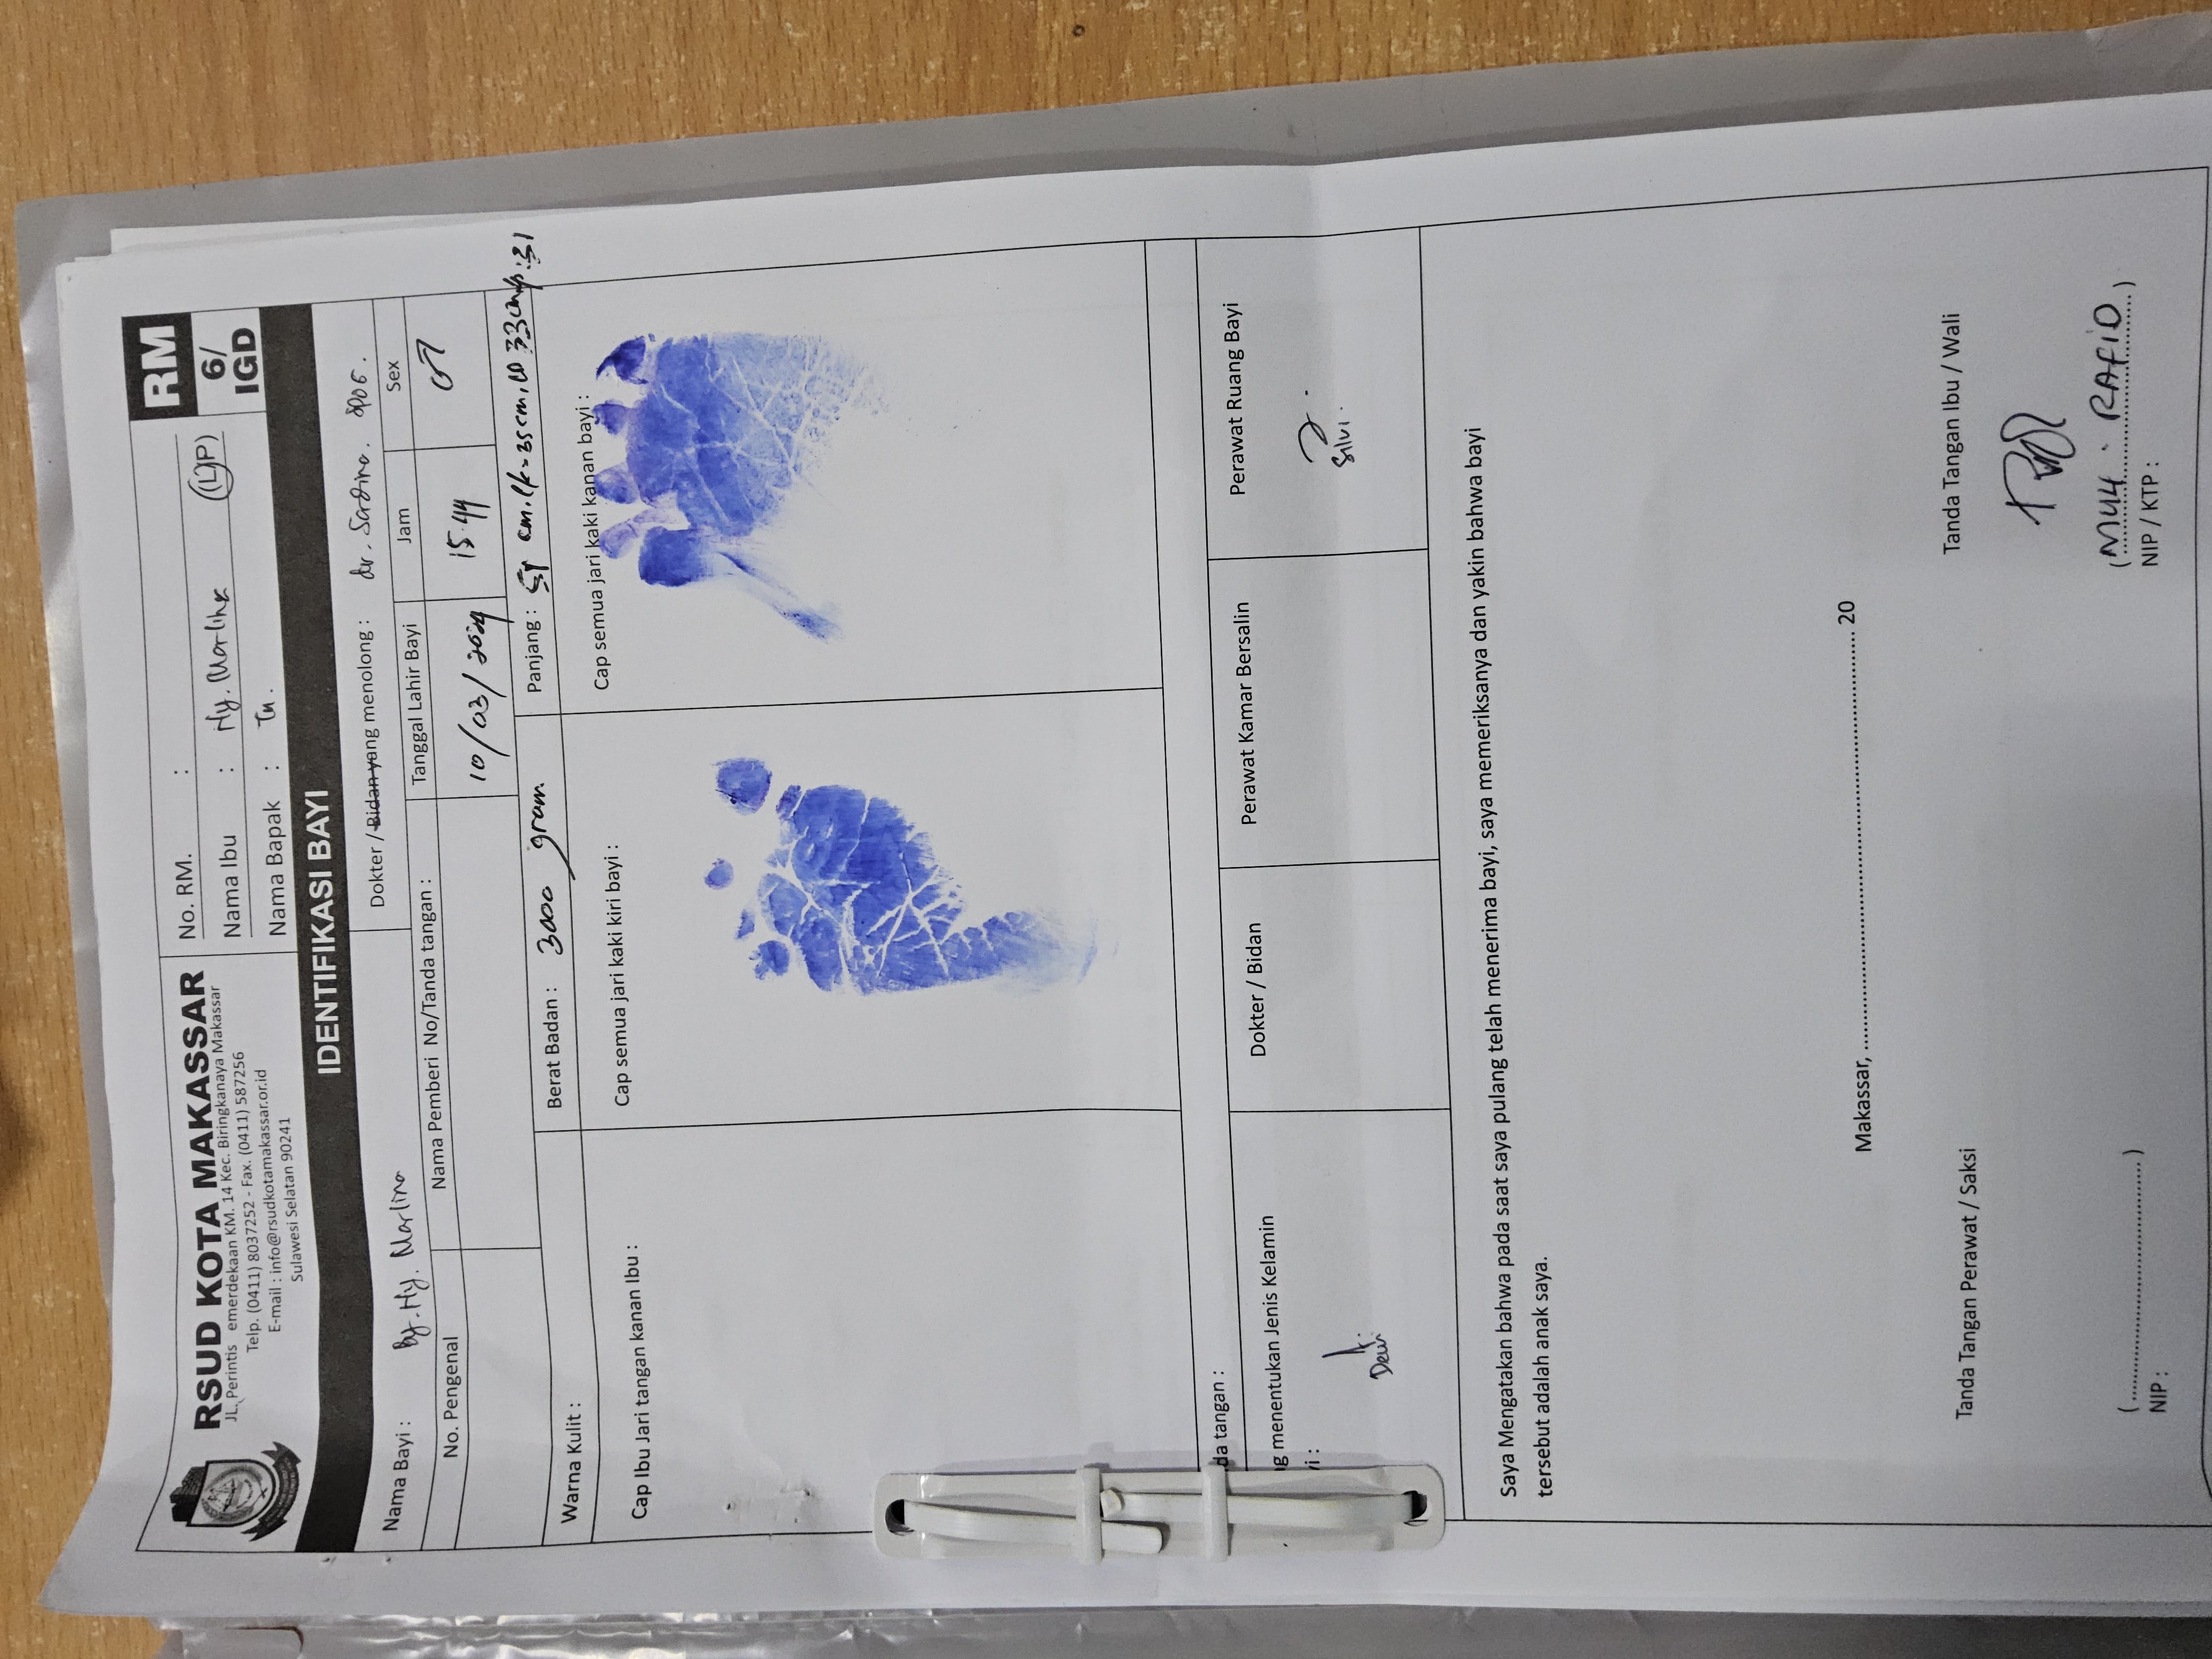 RSUD KOTA MAKASSAR
JL. Perintis emerdekaan KM. 14 Kec. Biringkanaya Makassar
Telp. (0411) 8037252 - Fax. (0411) 587256
E-mail : info@rsudkotamakassar.or.id
Sulawesi Selatan 90241
No. RM. :
Nama Ibu : Ny. Marlina (L/P)
Nama Bapak : Tn.
RM
6/
IGD
IDENTIFIKASI BAYI
Nama Bayi : By. Ny. Marlina
Dokter / Bidan yang menolong : dr.
No. Pengenal
Nama Pemberi No/Tanda tangan :
Tanggal Lahir Bayi
Jam
Sex
10/03/2024
15.44
♂
Warna Kulit :
Berat Badan : 3000 gram
Panjang : cm, lk=35cm, LD 33cm, : 31
Cap Ibu Jari tangan kanan Ibu :
Cap semua jari kaki kiri bayi :
Cap semua jari kaki kanan bayi :
da tangan :
g menentukan Jenis Kelamin
yi :
Dewi
Dokter / Bidan
Perawat Kamar Bersalin
Perawat Ruang Bayi
Silvi.
Saya Mengatakan bahwa pada saat saya pulang telah menerima bayi, saya memeriksanya dan yakin bahwa bayi
tersebut adalah anak saya.
Makassar, ........................................................................ 20
Tanda Tangan Perawat / Saksi
Tanda Tangan Ibu / Wali
(.........................................)
NIP :
(MUH. RAFID)
NIP / KTP :